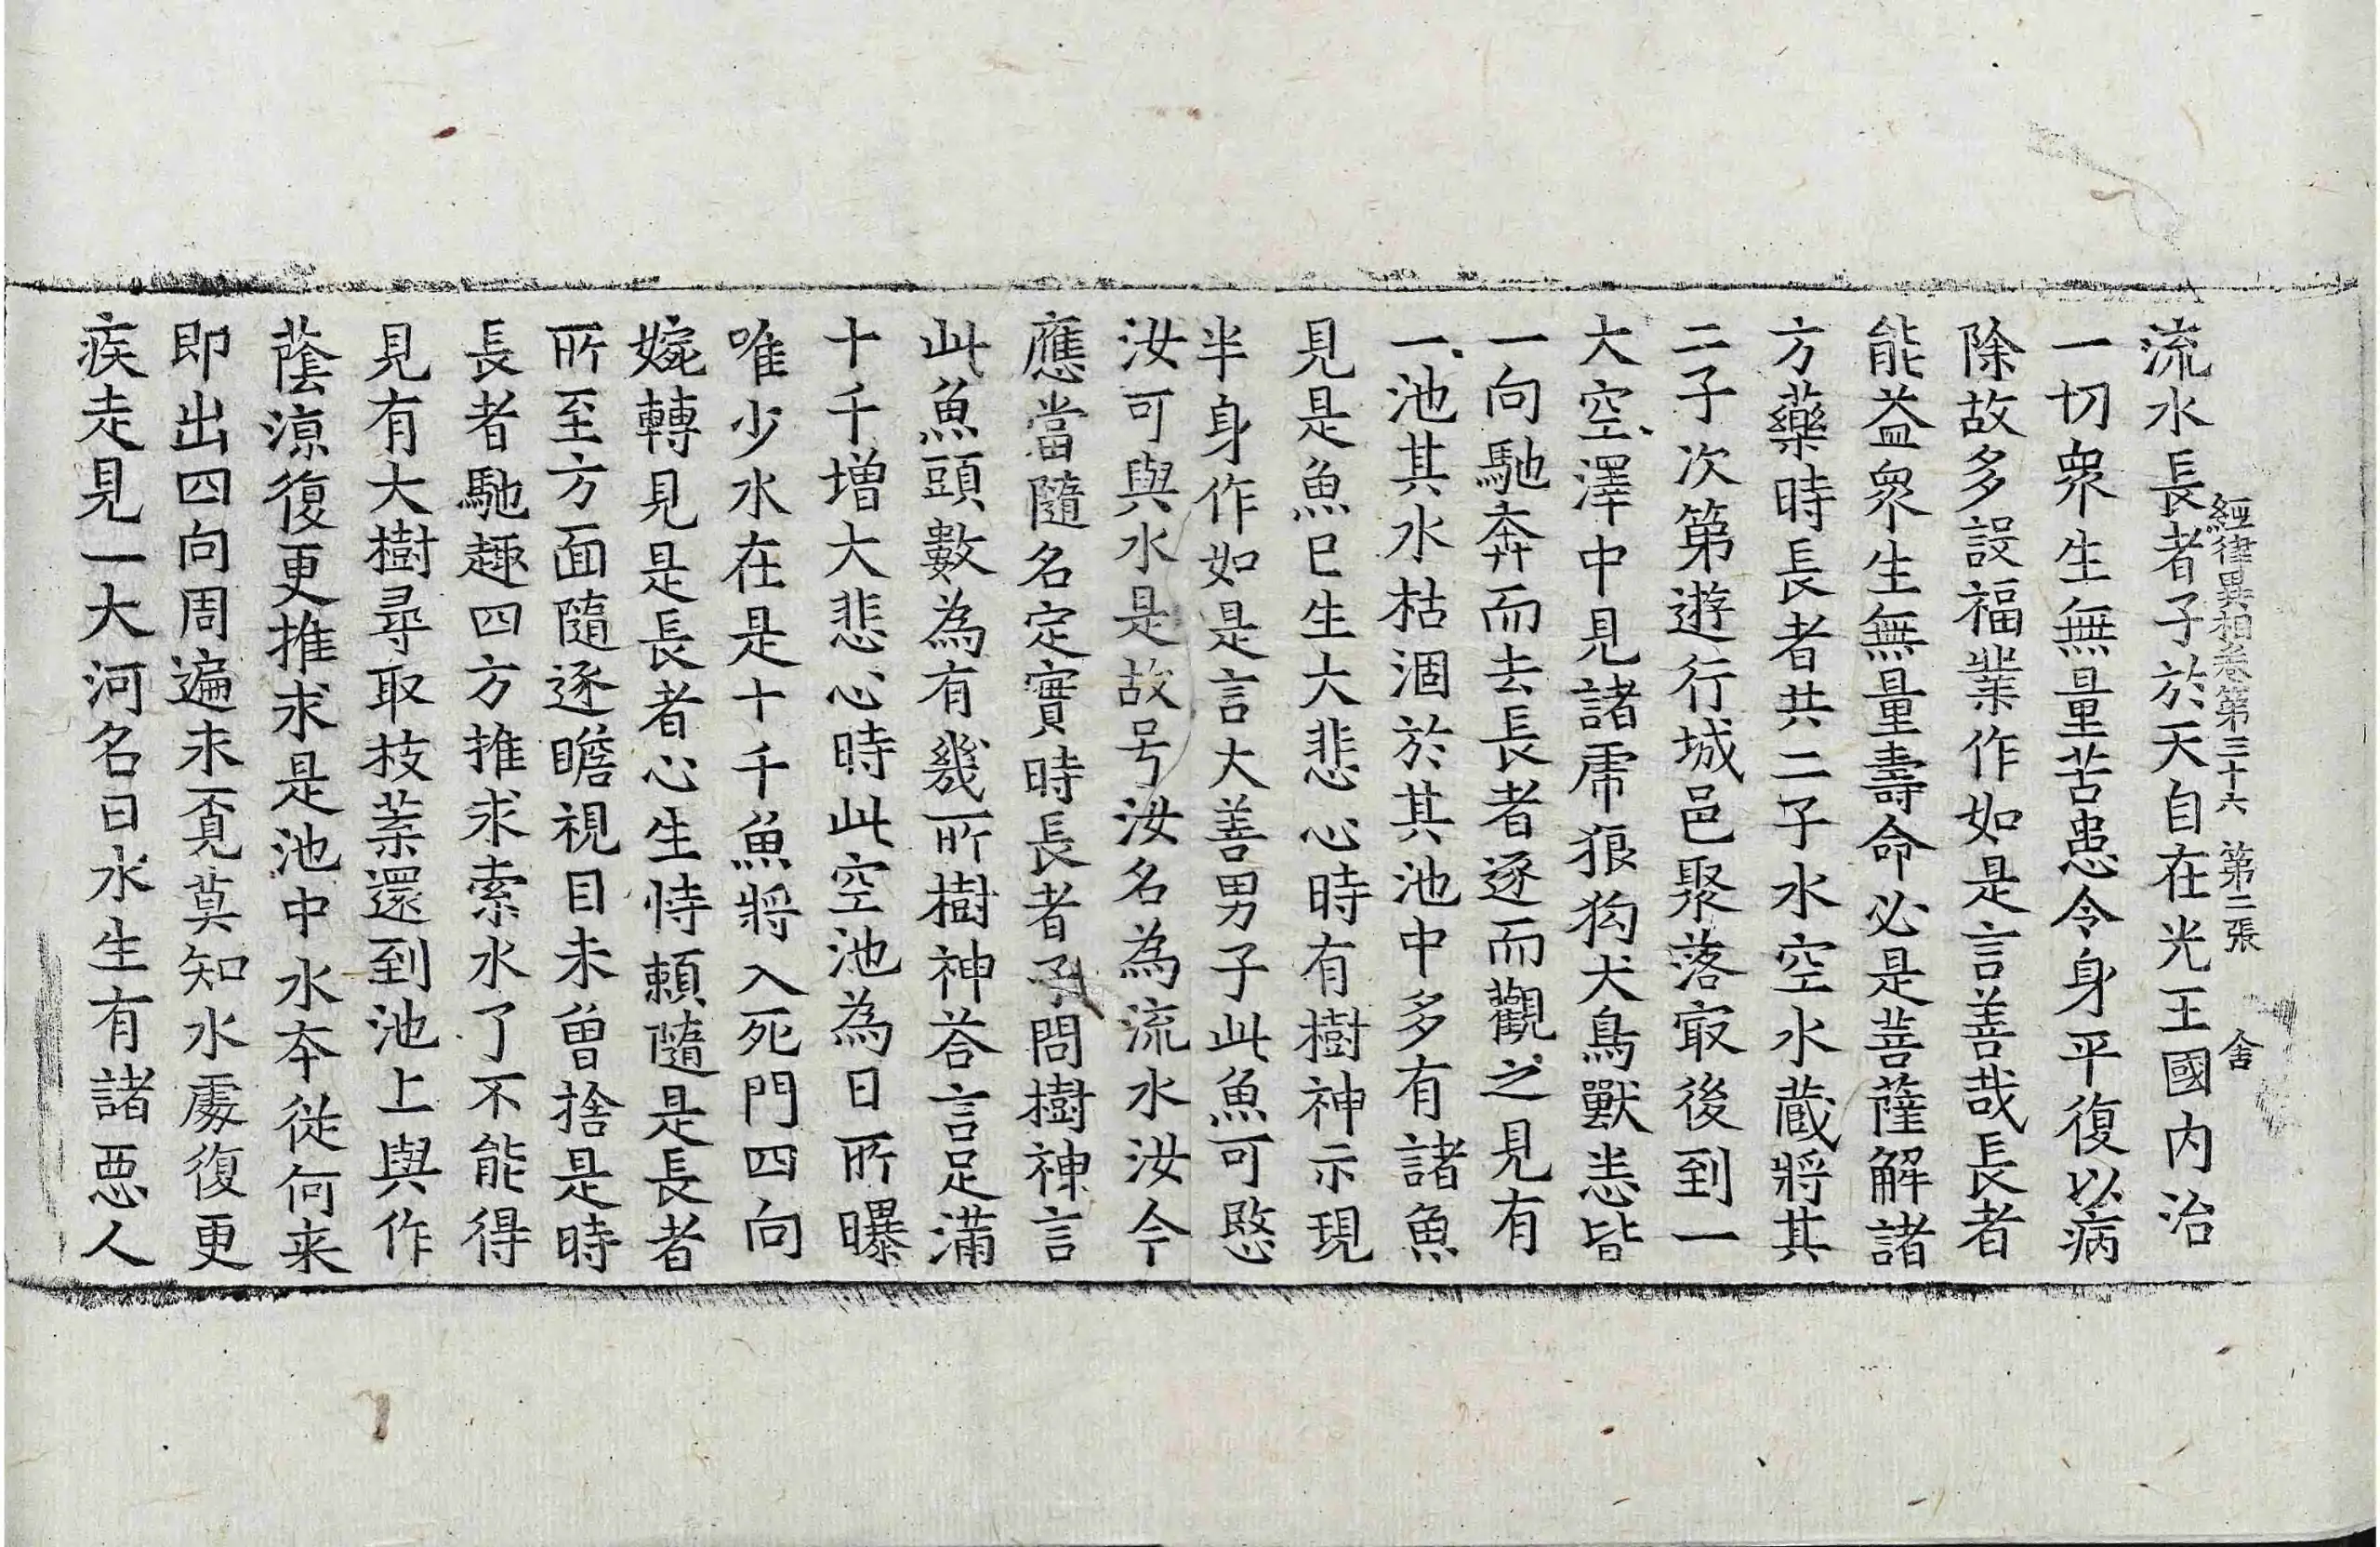 經律異相卷第三十六 第二張 舍
流水長者子於天自在光王國內治
一切衆生無量苦患令身平復以病
除故多設福業作如是言善哉長者
能益衆生無量壽命必是菩薩解諸
方藥時長者共二子水空水藏將其
二子次第遊行城邑聚落㝡後到一
大空澤中見諸虎狼狗犬鳥獸悉皆
一向馳奔而去長者逐而觀之見有
一池其水枯涸於其池中多有諸魚
見是魚已生大悲心時有樹神示現
半身作如是言大善男子此魚可愍
汝可與水是故号汝名為流水汝今
應當隨名定實時長者子問樹神言
此魚頭數為有幾所樹神荅言足滿
十千增大悲心時此空池為日所曝
唯少水在是十千魚將入死門四向
婉轉見是長者心生恃賴隨是長者
所至方面隨逐瞻視目未曾捨是時
長者馳趣四方推求索水了不能得
見有大樹尋取枝葉還到池上與作
蔭涼復更推求是池中水本從何来
即出四向周遍求覓莫知水處復更
疾走見一大河名曰水生有諸惡人